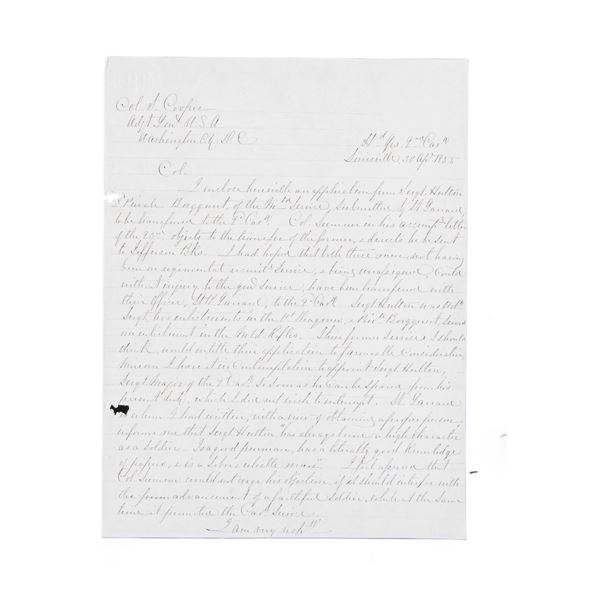 Col. S. Cooper
Adjt Genl U.S.A
Washington City D.C
Hd Qrs. 2nd Cavy
Louisville 30 Apl 1855
Col.
I enclose herewith an application from Sergt Hutton
& Private of the Mtd Service, submitted by Lt
to be transferred to the 2d Cavy Col. Sumner in his letter
of the objects to the transfer of the former, & directs he be sent
to Jefferson Bks. I had hoped that both these men, not having
been on regimental recruitg Service, & being unassigned, could
without injury to the genl Service, have been transferred with
their Officer, Lt to the 2d Cavy Sergt Hutton was
Sergt two enlistments in the 1st Dragoons, & served
an enlistment in the Mtd Rifles. Their former Services I should
think, would entitle their application to favorable Consideration
I have in Contemplation to appoint Sergt Hutton,
Sergt Major of the 2d Cavy as soon as he can be spared from his
present duty, which I did not wish to interrupt. Lt
to whom I had written, with a view of obtaining a proper person
informs me that Sergt Hutton "has always borne a high character
as a Soldier. Is a good penman, has a good knowledge
of papers, & is a Sober reliable man". I feel assured that
Col. Sumner would not urge his objections if it should interfere with
the advancement of a faithful Soldier, while at the same
time it promoted the Cavy Service.
I am very resply